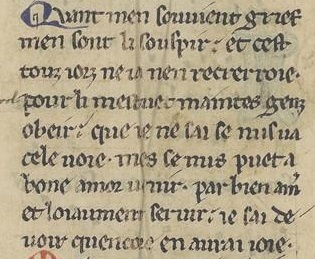 Quant men souuient grief
men sont li souspir. et cest
touz iorz ne ia nen recrerroie.
pour li mestuet maintes genz
obeir. que ie ne sai se nus ua
cele uoie. mes se nus puet a
bone amor uenir. par bien am̄
et loiaument seruir. ie sai de
uoir quencore en aurai ioie.